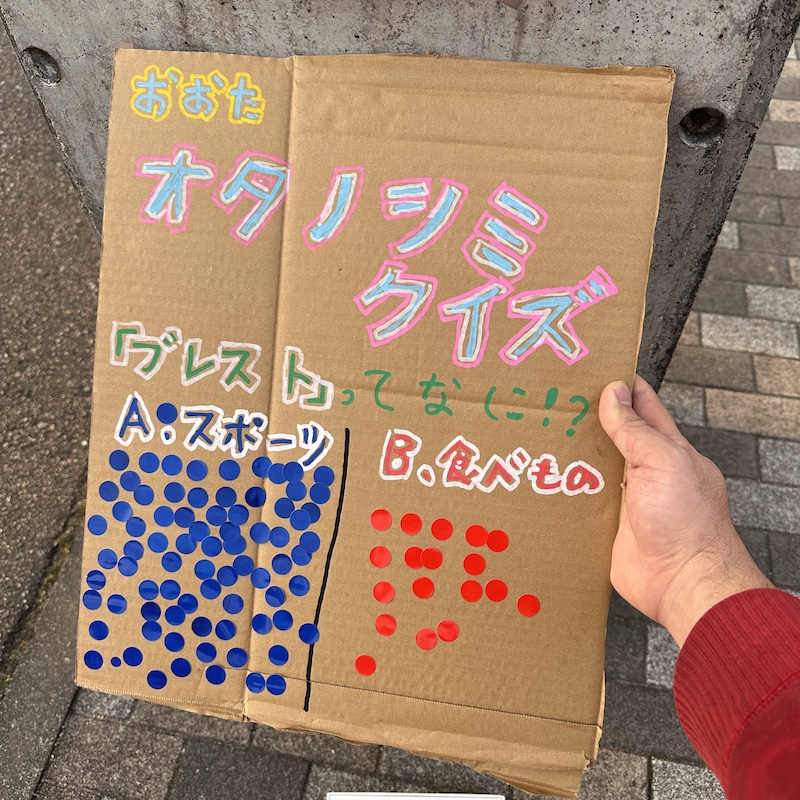 おおた
オタノシミ
クイズ
「ブレスト」ってなに!?
A:スポーツ
B、食べもの